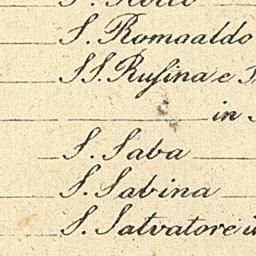 S. Romoaldo
SS. Rufina e
in
S. Saba
S. Sabina
S. Salvatore